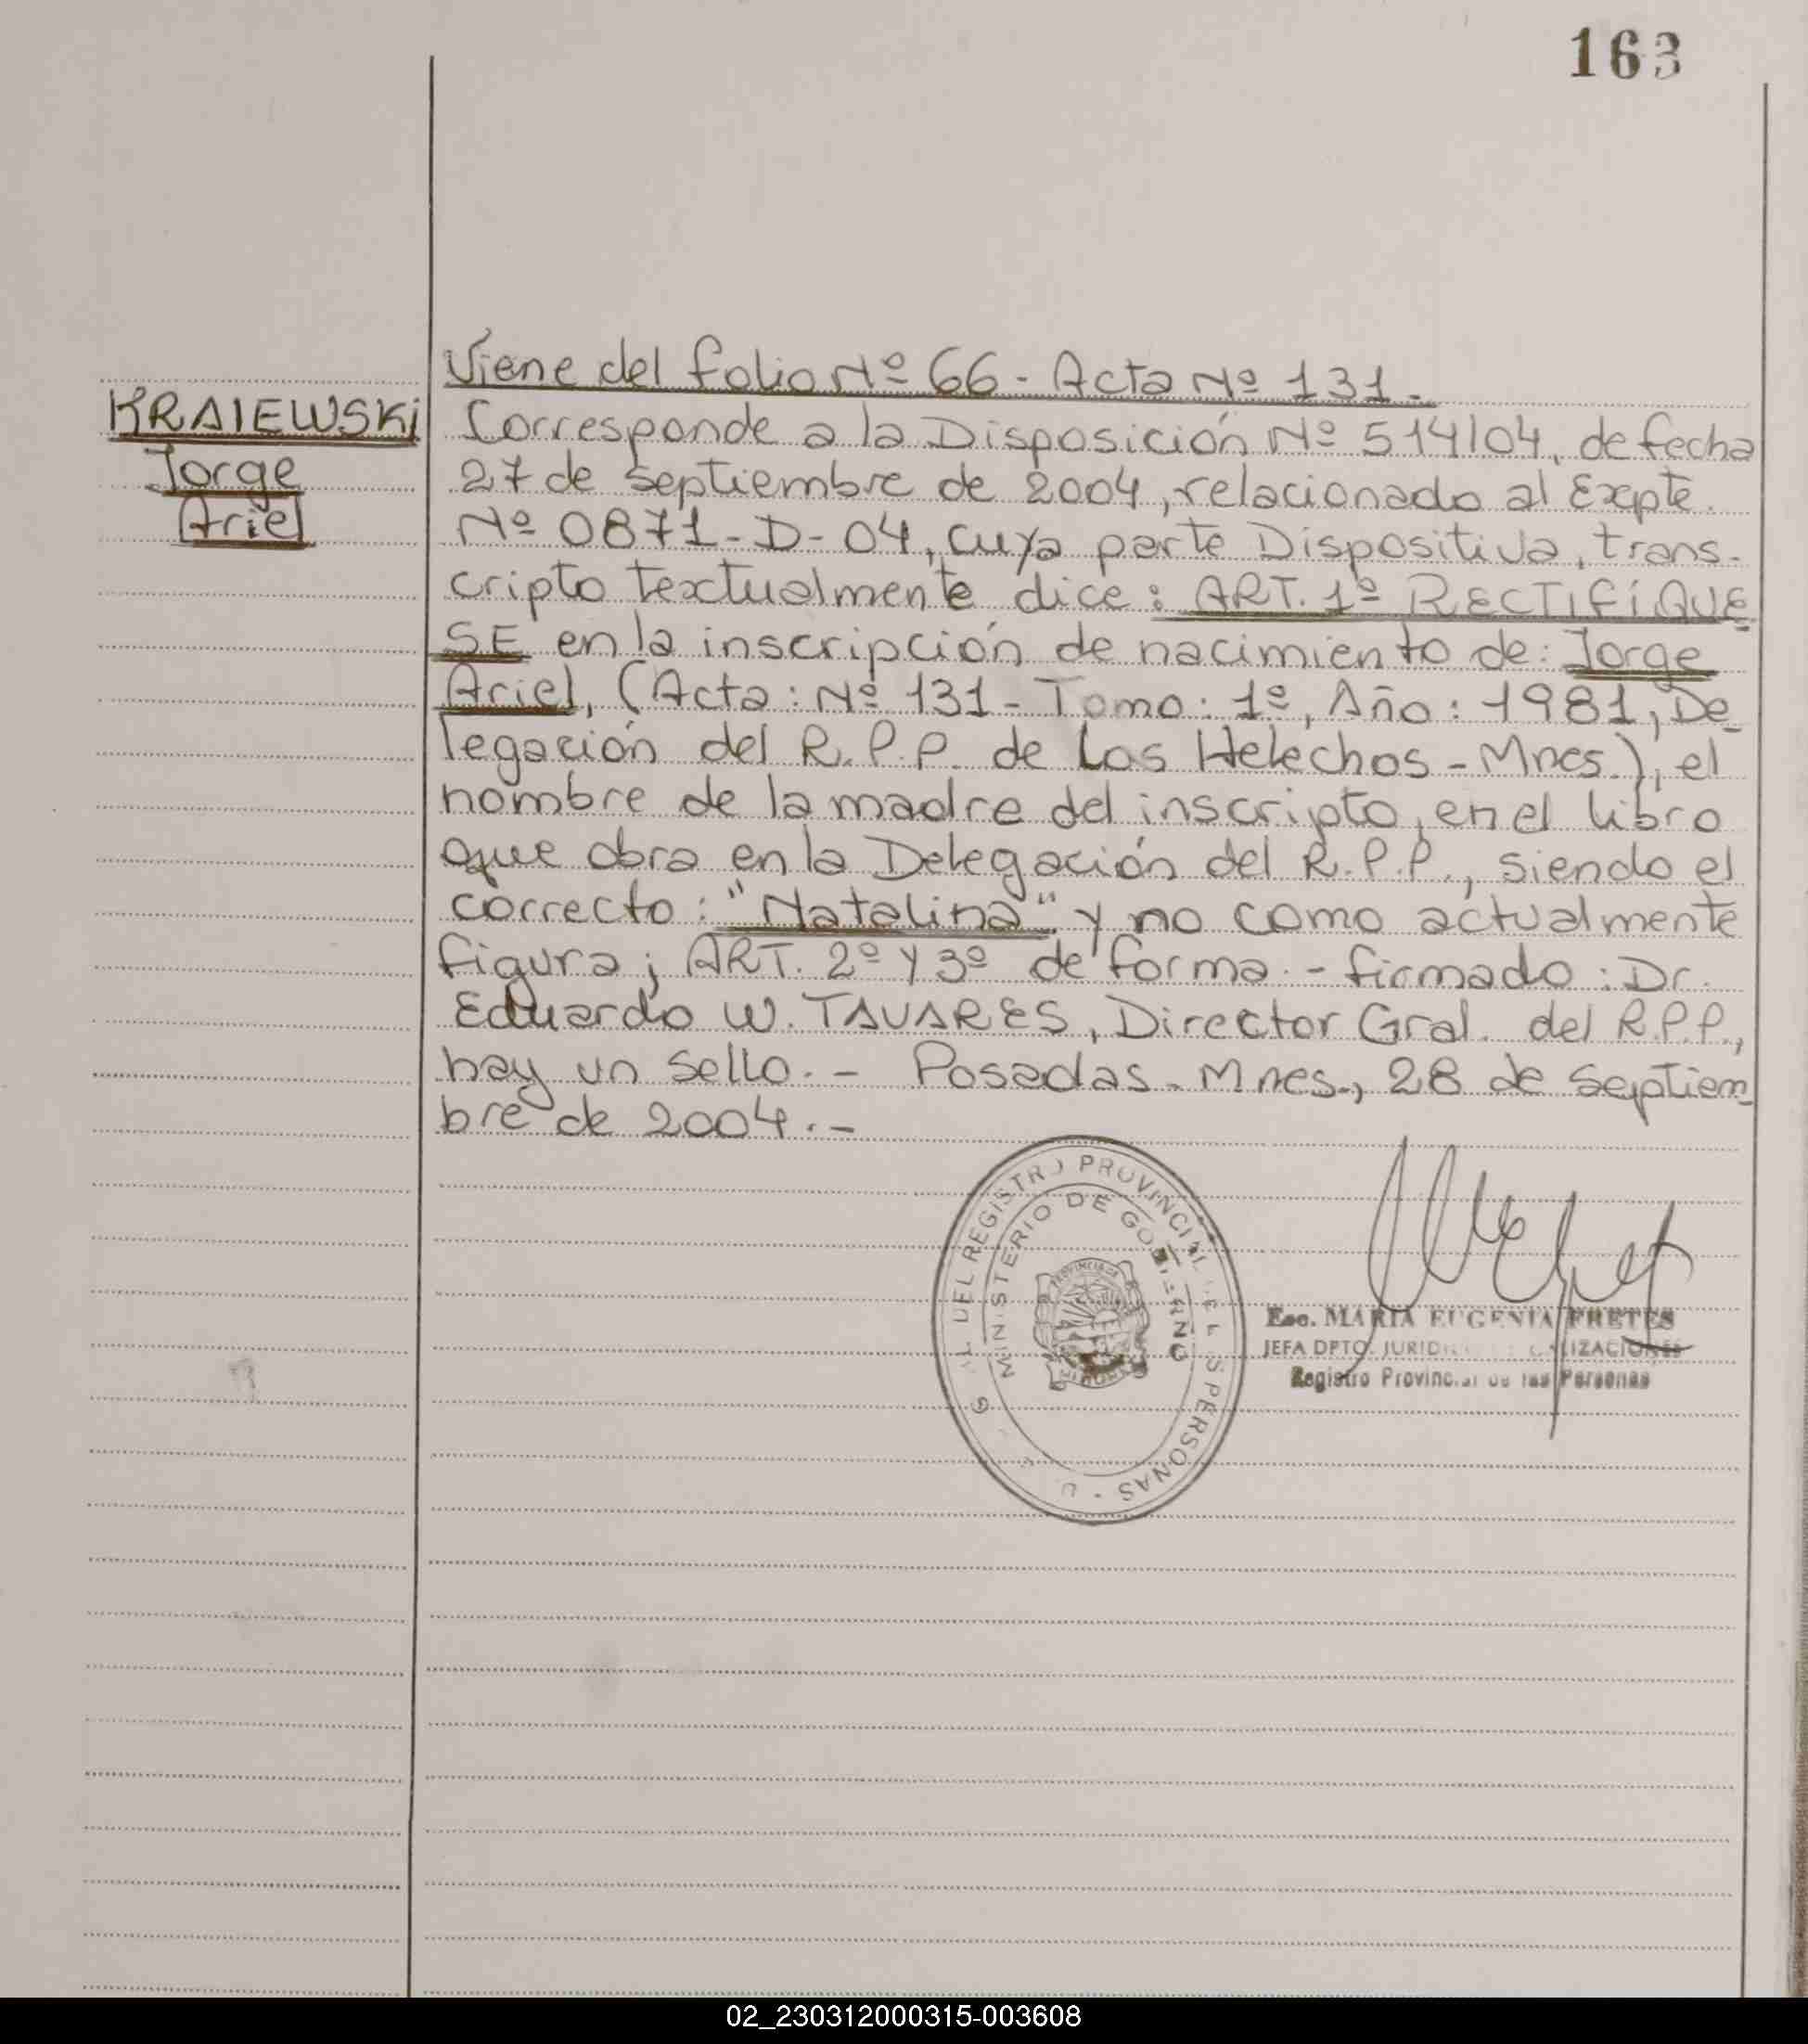 163
KRAIEWSKi
Jorge
Ariel
Viene del folio Nº 66 - Acta Nº 131.-
Corresponde a la Disposición Nº 514/04, de fecha
27 de septiembre de 2004, relacionado al Expte.
Nº 0871-D-04, cuya parte Dispositiva, trans-
cripto textualmente dice: ART. 1º RECTIFÍQUE
SE en la inscripción de nacimiento de: Jorge
Ariel, (Acta: Nº 131 - Tomo: 1º, Año: 1981, De-
legación del R.P.P. de Los Helechos - Mnes.), el
nombre de la madre del inscripto, en el libro
que obra en la Delegación del R.P.P., siendo el
correcto: "Natalina" y no como actualmente
figura; ART. 2º y 3º de forma.- firmado: Dr.
Eduardo W. TAVARES, Director Gral. del R.P.P.,
hay un sello.- Posadas - Mnes., 28 de septiem-
bre de 2004.-
DEL REGISTRO PROVINCIAL DE LAS PERSONAS
MINISTERIO DE GOBIERNO
PROVINCIA DE
MISIONES
Esc. MARIA EUGENIA FRETES
JEFA DPTO. JURIDICO
Registro Provincial de las Personas
02_230312000315-003608